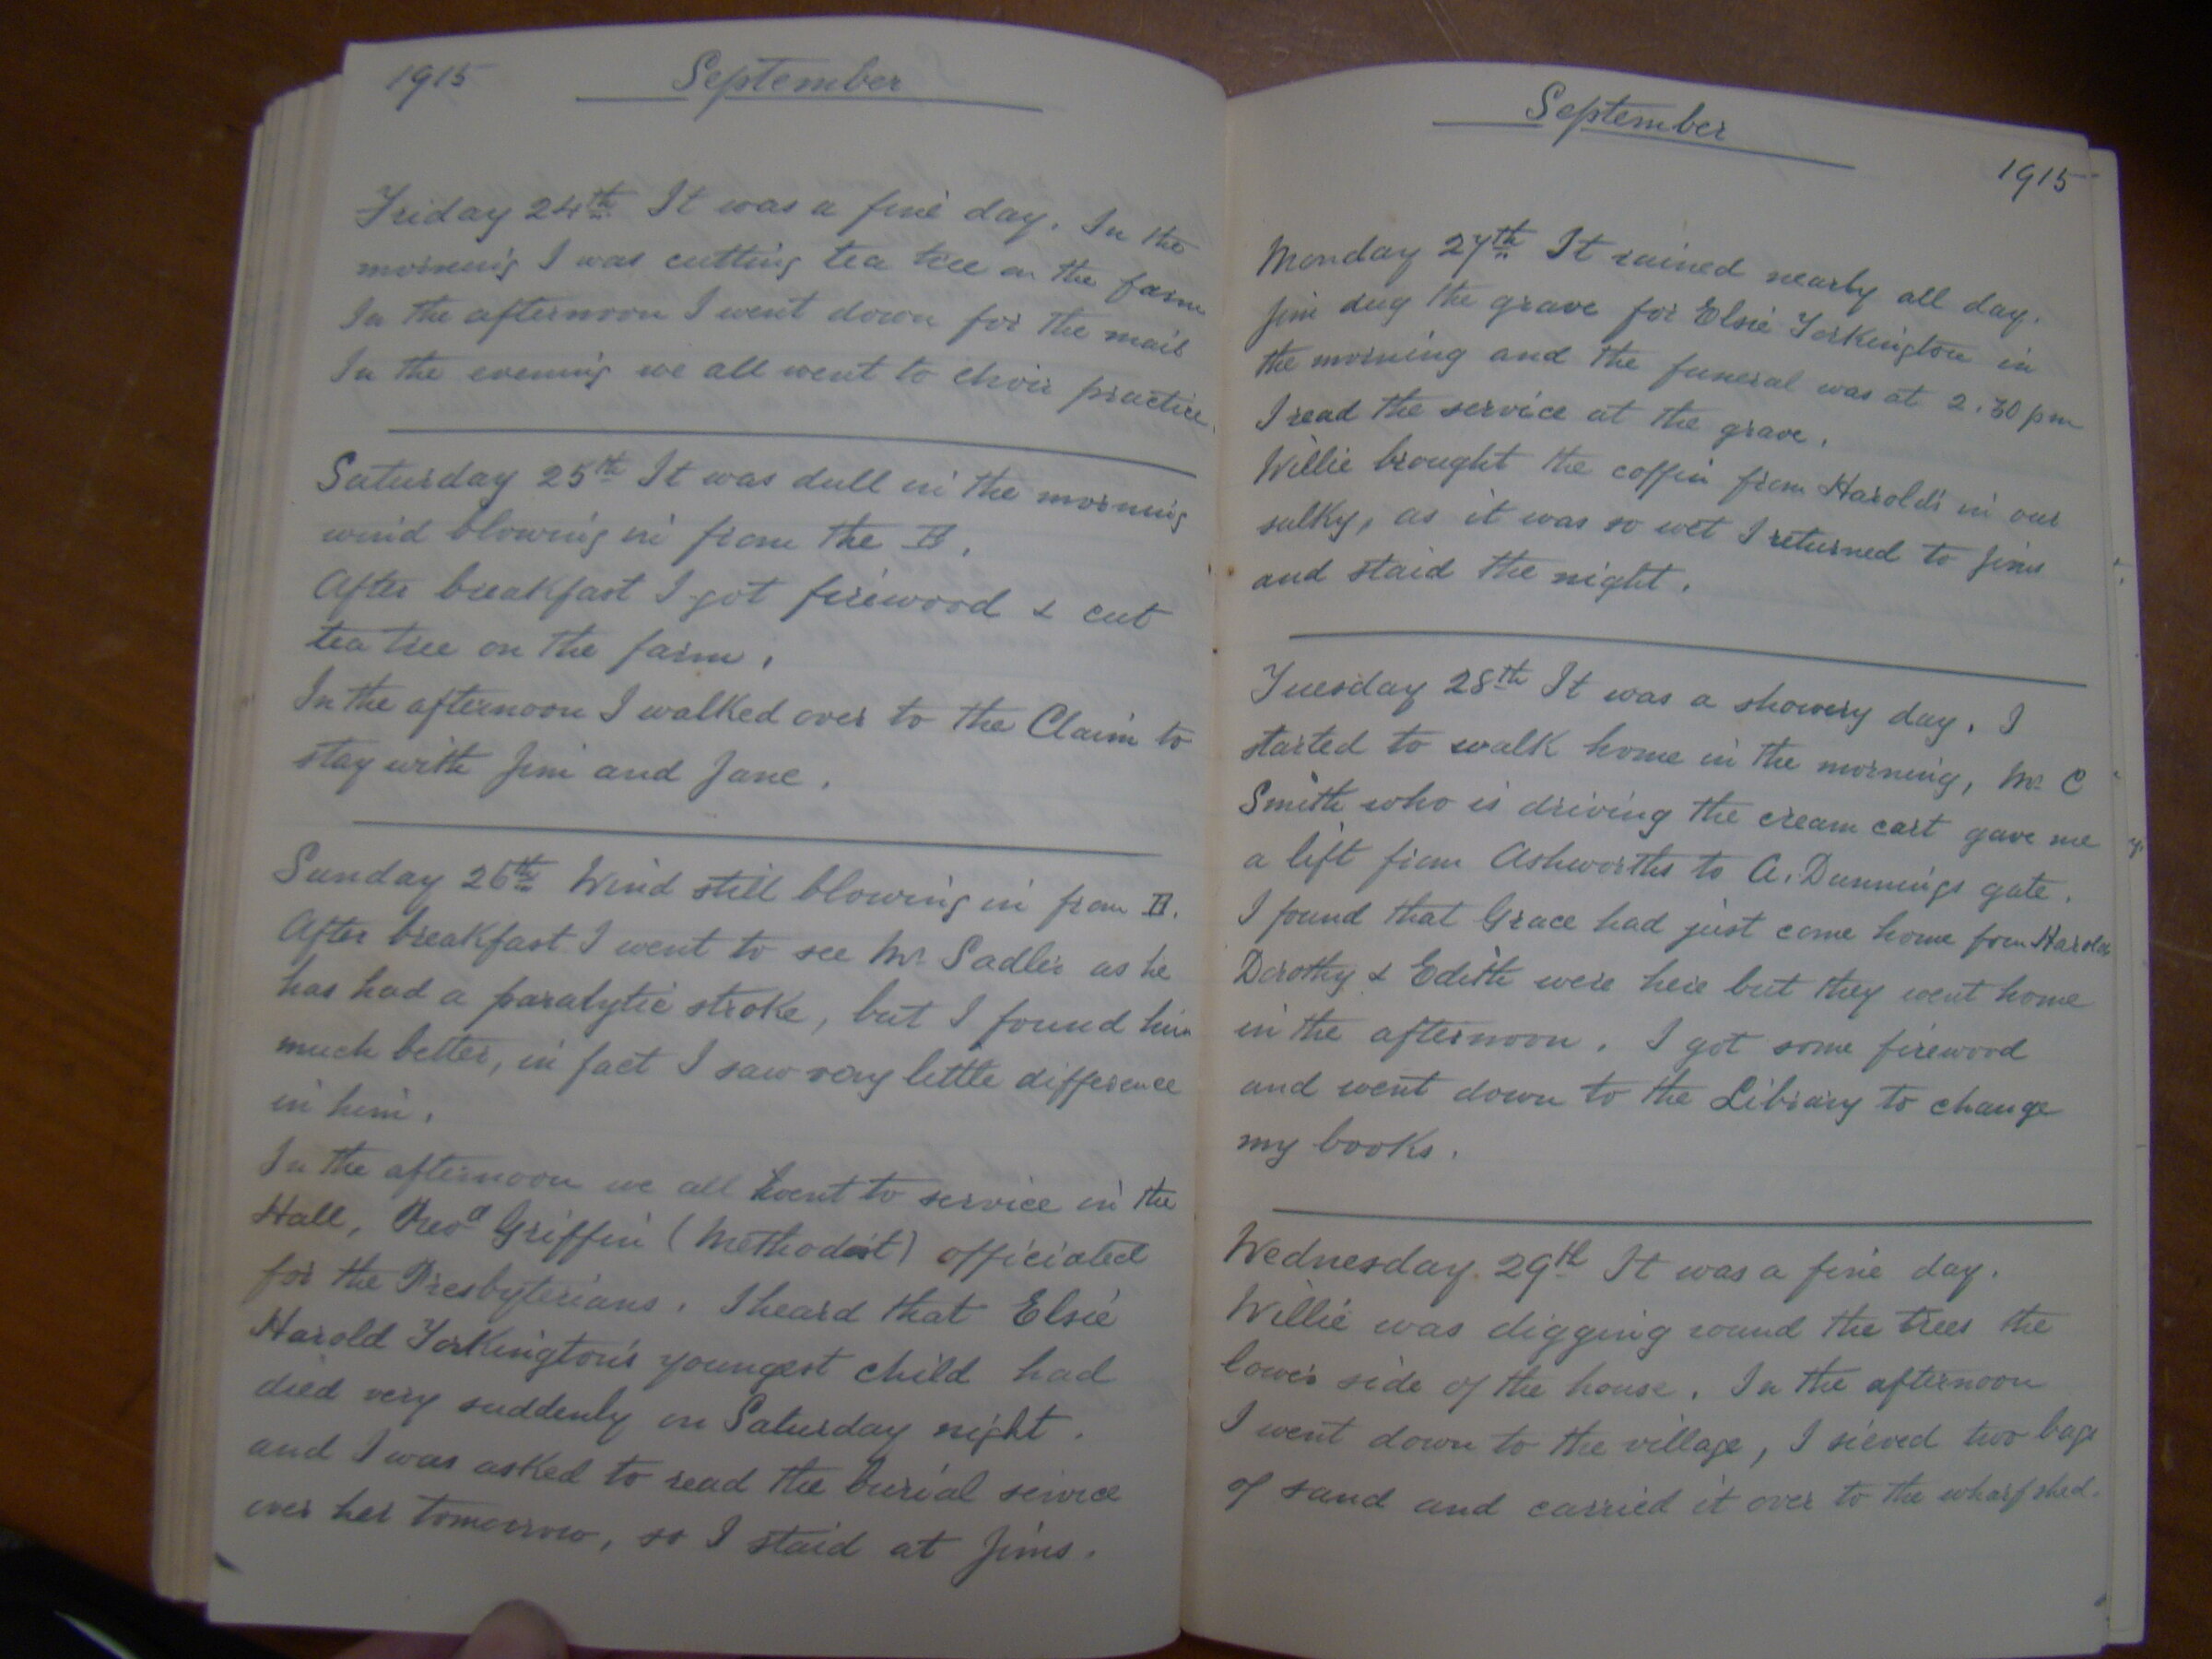 1915 September
Friday 24th It was a fine day. In the
morning I was cutting tea tree on the farm
In the afternoon I went down for the mail
In the evening we all went to choir practice.
Saturday 25th It was dull in the morning
wind blowing in from the E.
After breakfast I got firewood & cut
tea tree on the farm.
In the afternoon I walked over to the Claim to
stay with Jim and Jane.
Sunday 26th Wind still blowing in from E.
After breakfast I went to see Mr Sadler as he
has had a paralytic stroke, but I found him
much better, in fact I saw very little difference
in him.
In the afternoon we all went to service in the
Hall, Revd Griffin (Methodist) officiated
for the Presbyterians. I heard that Elsie
Harold Torkington's youngest child had
died very suddenly on Saturday night.
and I was asked to read the burial service
over her tomorrow, so I staid at Jims.
September
1915
Monday 27th It rained nearly all day.
Jim dug the grave for Elsie Torkington in
the morning and the funeral was at 2.30 pm
I read the service at the grave.
Willie brought the coffin from Harolds in our
sulky, as it was so wet I returned to Jims
and staid the night.
Tuesday 28th It was a showery day. I
started to walk home in the morning, Mr C
Smith who is driving the cream cart gave me
a lift from Ashworths to A. Dunnings gate.
I found that Grace had just come home from Harolds
Dorothy & Edith were here but they went home
in the afternoon. I got some firewood
and went down to the Library to change
my books.
Wednesday 29th It was a fine day.
Willie was digging round the trees the
lower side of the house. In the afternoon
I went down to the village, I sieved two bags
of sand and carried it over to the wharf shed.